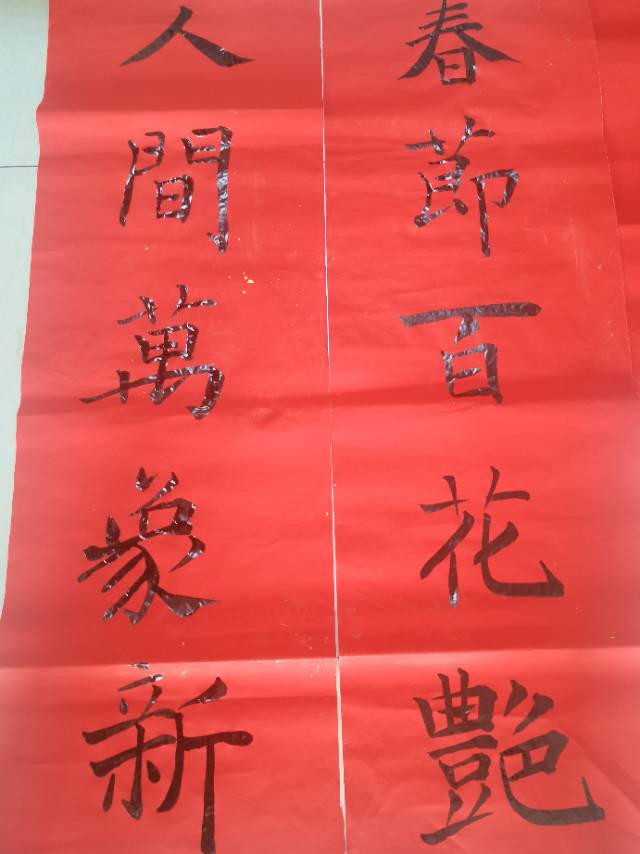 春節百花艷
人間萬象新